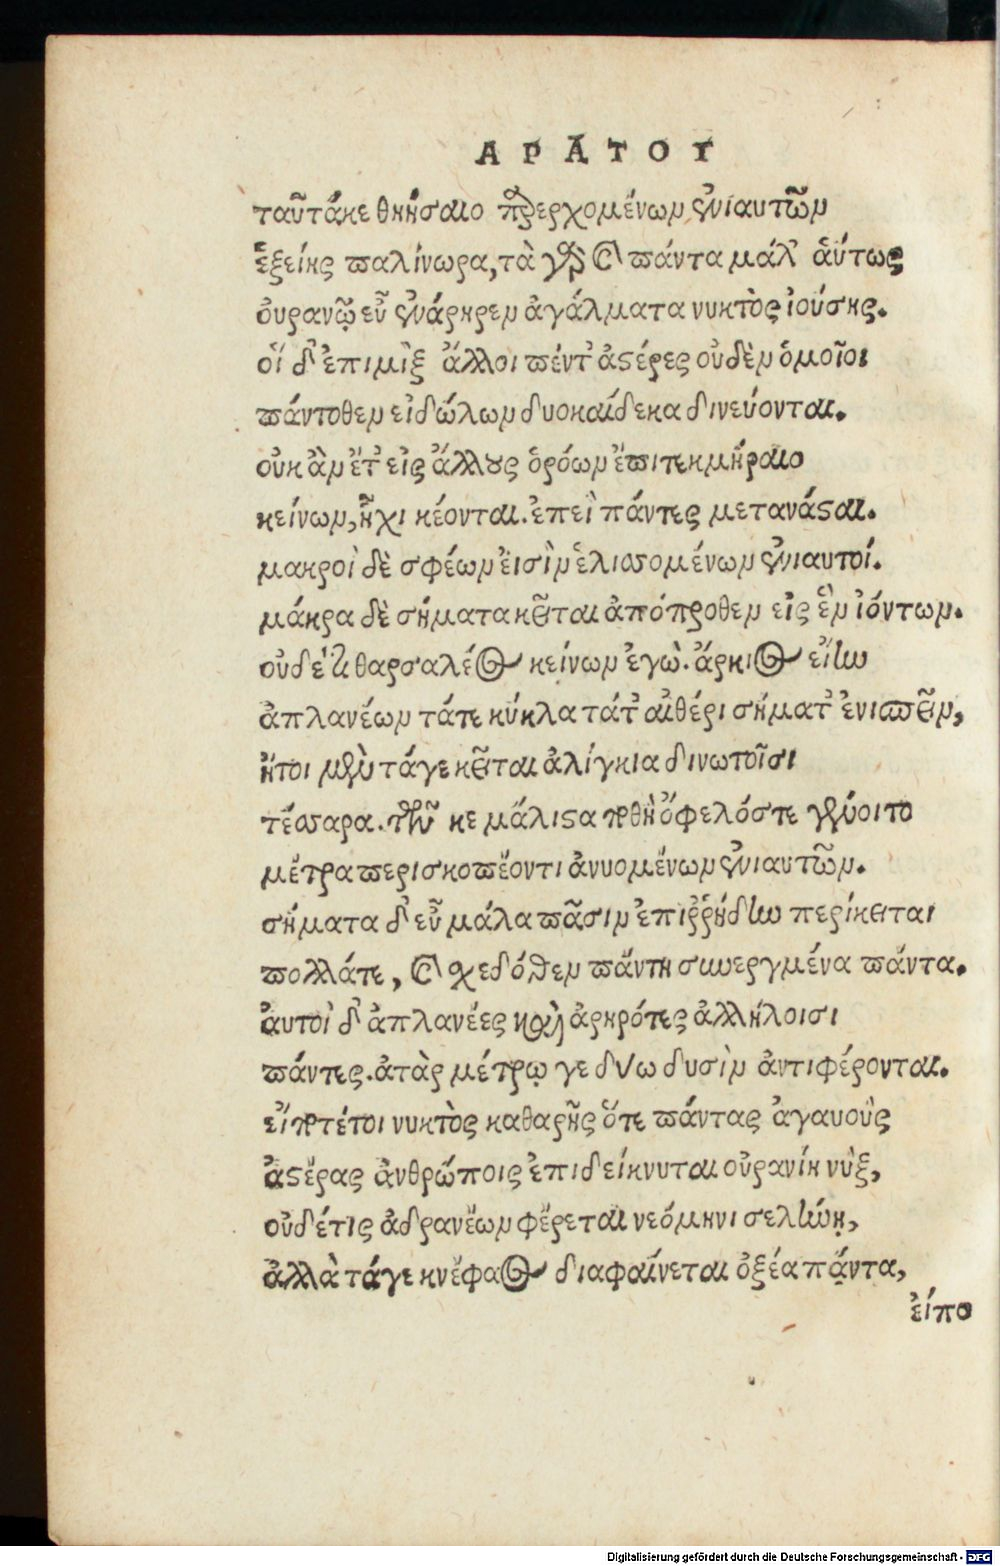 ΑΡΑΤΟΥ
ταῦτά κε θηήσαιο παρερχομένων ἐνιαυτῶν
ἑξείης παλίνωρα, τὰ γὰρ καὶ πάντα μάλ' αὕτως
οὐρανῷ εὖ ἐνάρηρεν ἀγάλματα νυκτὸς ἰούσης.
οἵ δ' ἐπιμὶξ ἄλλοι πέντ' ἀστέρες οὐδὲν ὁμοῖοι
πάντοθεν εἰδώλων δυοκαίδεκα δινεύονται.
οὐκ ἂν ἔτ' εἰς ἄλλους ὁρόων ἔπι τεκμήραιο
κείνων, ἧχι κέονται. ἐπεὶ πάντες μετανάσται.
μακροὶ δὲ σφέων εἰσὶν ἑλισσομένων ἐνιαυτοί.
μάκρα δὲ σήματα κεῖται ἀπόπροθεν εἰς ἓν ἰόντων.
οὐδ' ἔτι θαρσαλέος κείνων ἐγὼ. ἄρκιος εἴην
ἀπλανέων τά τε κύκλα τά τ' αἰθέρι σήματ' ἐνισπεῖν,
ἤτοι μὲν τάγε κεῖται ἀλίγκια δινωτοῖσι
τέσσαρα. τῶν κε μάλιστα ποθὴ ὄφελός τε γένοιτο
μέτρα περισκοπέοντι ἀνυομένων ἐνιαυτῶν.
σήματα δ' εὖ μάλα πᾶσιν ἐπιῤῥήδην περίκειται
πολλά τε, καὶ σχεδόθεν πάντη συνεργμένα πάντα.
αὐτοὶ δ' ἀπλανέες καὶ ἀρηρότες ἀλλήλοισι
πάντες. ἀτὰρ μέτρῳ γε δύω δυσὶν ἀντιφέρονται.
εἴ ποτέ τοι νυκτὸς καθαρῆς ὅτε πάντας ἀγαυοὺς
ἀστέρας ἀνθρώποις ἐπιδείκνυται οὐρανίη νὺξ,
οὐδέ τις ἀδρανέων φέρεται νεόμηνι σελήνῃ,
ἀλλὰ τάγε κνέφαος διαφαίνεται ὀξέα πάντα,
εἴπο
Digitalisierung gefördert durch die Deutsche Forschungsgemeinschaft - DFG